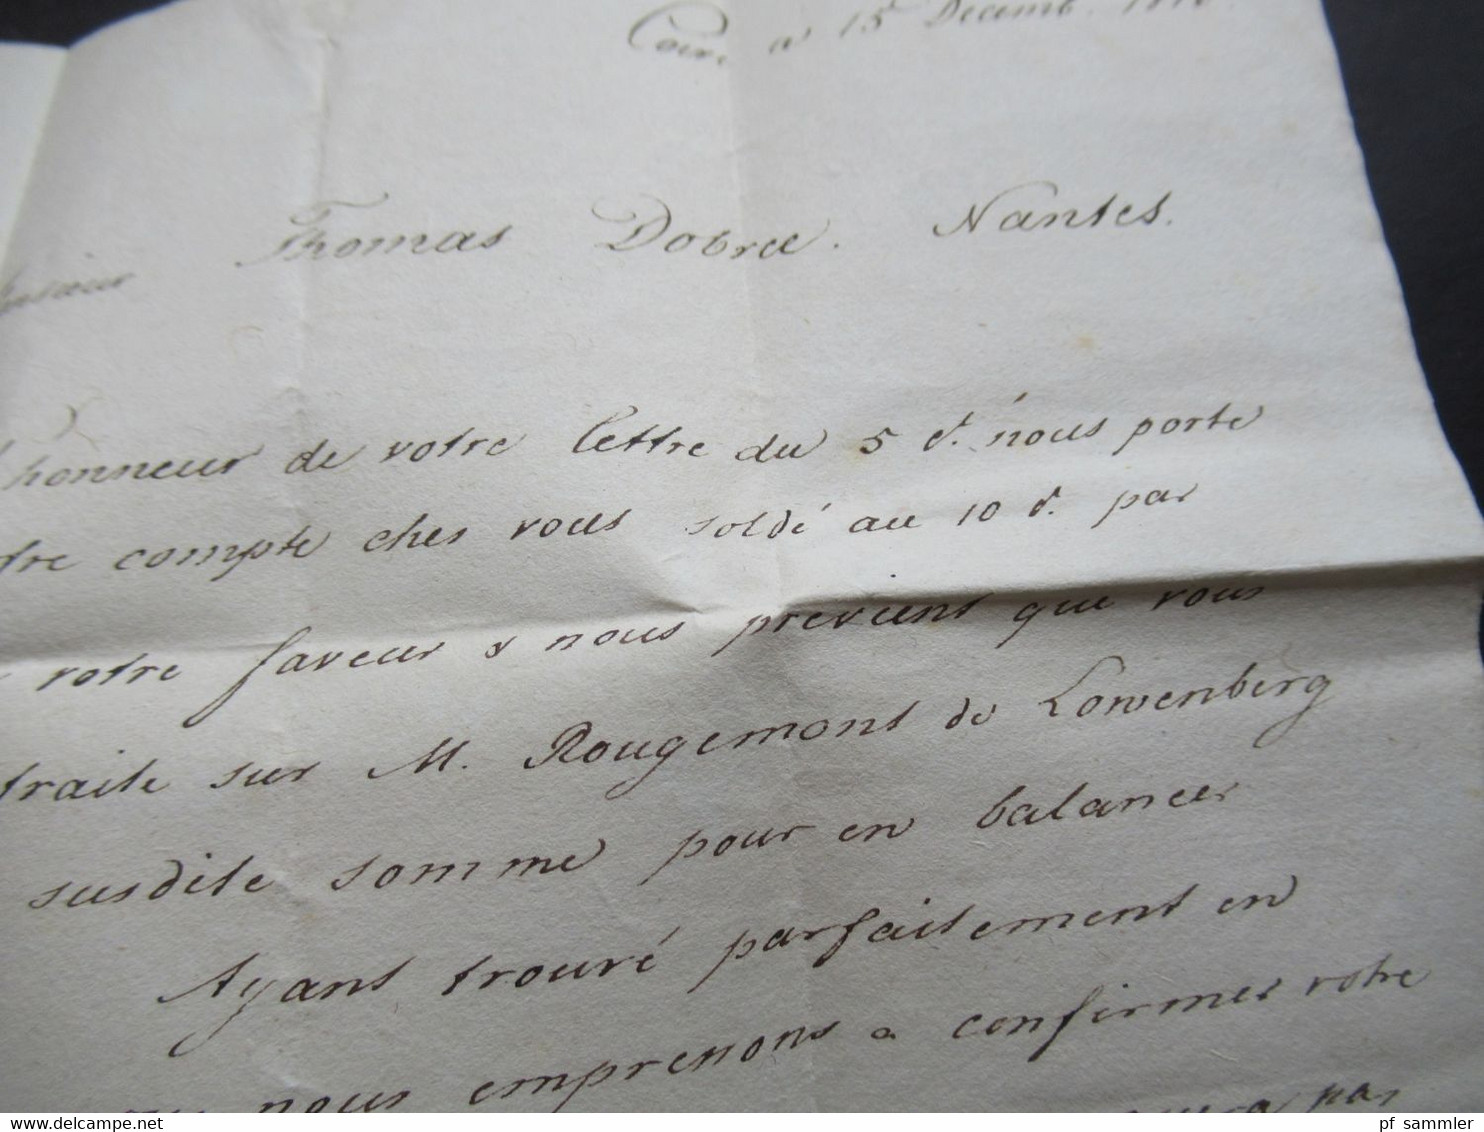 15 Decemb.
Thomas Dobree. Nantes.
honneur de votre lettre du 5 ct. nous porte
compte ches vous soldé au 10 ct. par
votre faveur & nous previent que vous
traite sur M. Rougemont de Lowenberg
susdite somme pour en balancer
Ayant trouvé parfaitement en
nous empressons a confirmer votre
par
© www.delcampe.net
pf_sammler